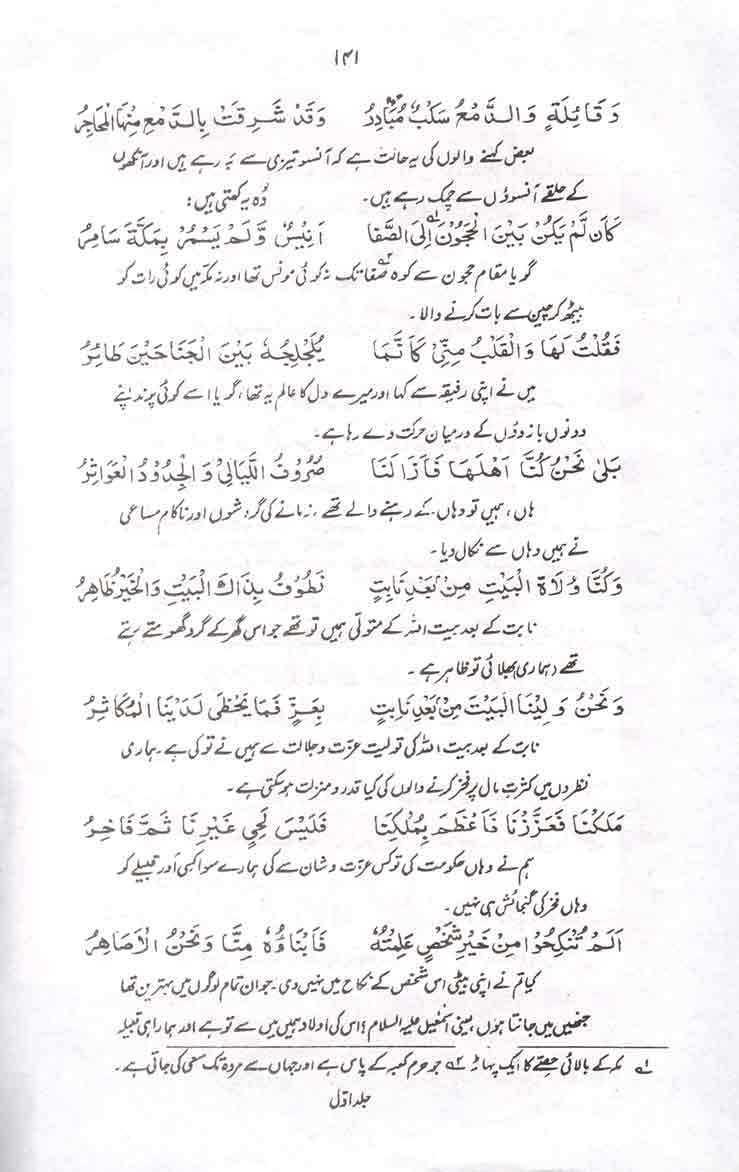 ۱۴۱
وَقَائِلَةٍ وَالدَّمْعُ سَكْبٌ مُبَادِرُ وَقَدْ شَرِقَتْ بِالدَّمْعِ مِنْهَا الْمَحَاجِرُ
بعض کہنے والوں کی یہ حالت ہے کہ آنسو تیزی سے بہہ رہے ہیں اور آنکھوں
کے حلقے آنسوؤں سے چمک رہے ہیں۔ وہ یہ کہتی ہیں:
كَاَن لَّمْ يَكُنْ بَيْنَ الْحَجُوْنِ اِلَى الصَّفَا اَنِيْسٌ وَّلَمْ يَسْمُرْ بِمَكَّةَ سَامِرُ
گویا مقام حجون سے کوہ صفا تک نہ کوئی مونس تھا اور نہ مکہ میں کوئی رات کو
بیٹھ کر چین سے بات کرنے والا۔
فَقُلْتُ لَهَا وَالْقَلْبُ مِنِّيْ كَاَنَّمَا يُلَجْلِجُهٗ بَيْنَ الْجَنَاحَيْنِ طَائِرُ
میں نے اپنی رفیقہ سے کہا اور میرے دل کا عالم یہ تھا، گویا اسے کوئی پرند اپنے
دونوں بازوؤں کے درمیان حرکت دے رہا ہے۔
بَلٰى نَحْنُ كُنَّا اَهْلَهَا فَاَزَالَنَا صُرُوْفُ اللَّيَالِيْ وَالْجُدُوْدُ الْعَوَاثِرُ
ہاں، ہمیں تو وہاں کے رہنے والے تھے، زمانے کی گردشوں اور ناکام مساعی
نے ہمیں وہاں سے نکال دیا۔
وَكُنَّا وُلَاةَ الْبَيْتِ مِنْ بَعْدِ نَابِتٍ نَطُوْفُ بِذَاكَ الْبَيْتِ وَالْخَيْرُ ظَاهِرُ
نابت کے بعد بیت اللہ کے متولی ہمیں تو تھے جو اس گھر کے گرد گھومتے رہتے
تھے (ہماری) بھلائی تو ظاہر ہے۔
وَنَحْنُ وَلِيْنَا الْبَيْتَ مِنْ بَعْدِ نَابِتٍ بِعِزٍّ فَمَا يَحْظٰى لَدَيْنَا الْمُكَاثِرُ
نابت کے بعد بیت اللہ کی تولیت عزت و جلالت سے ہمیں نے تو کی ہے۔ ہماری
نظروں میں کثرتِ مال پر فخر کرنے والوں کی کیا قدر و منزلت ہو سکتی ہے۔
مَلَكْنَا فَعَزَّزْنَا فَاَعْظَمَ بِمُلْكِنَا فَلَيْسَ لِحَيٍّ غَيْرِنَا ثَمَّ فَاخِرُ
ہم نے وہاں حکومت کی تو کس عزت و شان سے کی ہمارے سوا کسی اور قبیلے کو
وہاں فخر کی گنجائش ہی نہیں۔
اَلَمْ تُنْكِحُوْا مِنْ خَيْرِ شَخْصٍ عَلِمْتُهٗ فَاَبْنَاؤُهٗ مِنَّا وَنَحْنُ الْاَصَاهِرُ
کیا تم نے اپنی بیٹی اس شخص کے نکاح میں نہیں دی۔ جو ان تمام لوگوں میں بہترین تھا
جنھیں میں جانتا ہوں، یعنی اسمٰعیل علیہ السلام؟ اس کی اولاد ہمیں میں سے تو ہے اور ہمارا ہی قبیلہ
۱؎ مکہ کے بالائی حصے کا ایک پہاڑ ۲؎ جو حرم کعبہ کے پاس ہے اور جہاں سے مردہ تک سعی کی جاتی ہے۔
جلد اوّل